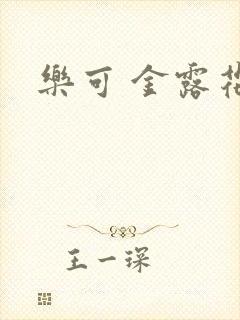 樂可 金露花
王一琛